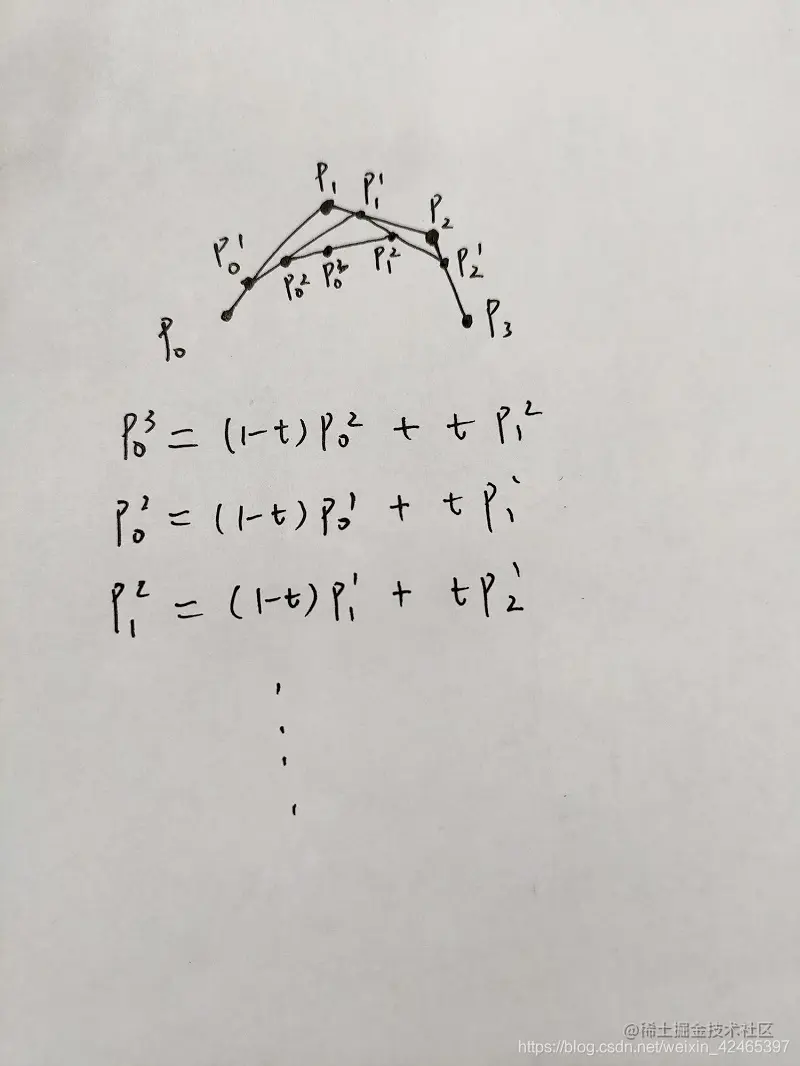 P₁ P₁¹ P₂
P₀¹ P₀² P₀³ P₁² P₂¹
P₀ P₃
P₀³ = (1-t)P₀² + t P₁²
P₀² = (1-t)P₀¹ + t P₁¹
P₁² = (1-t)P₁¹ + t P₂¹
@稀土掘金技术社区
https://blog.csdn.net/weixin_42465397